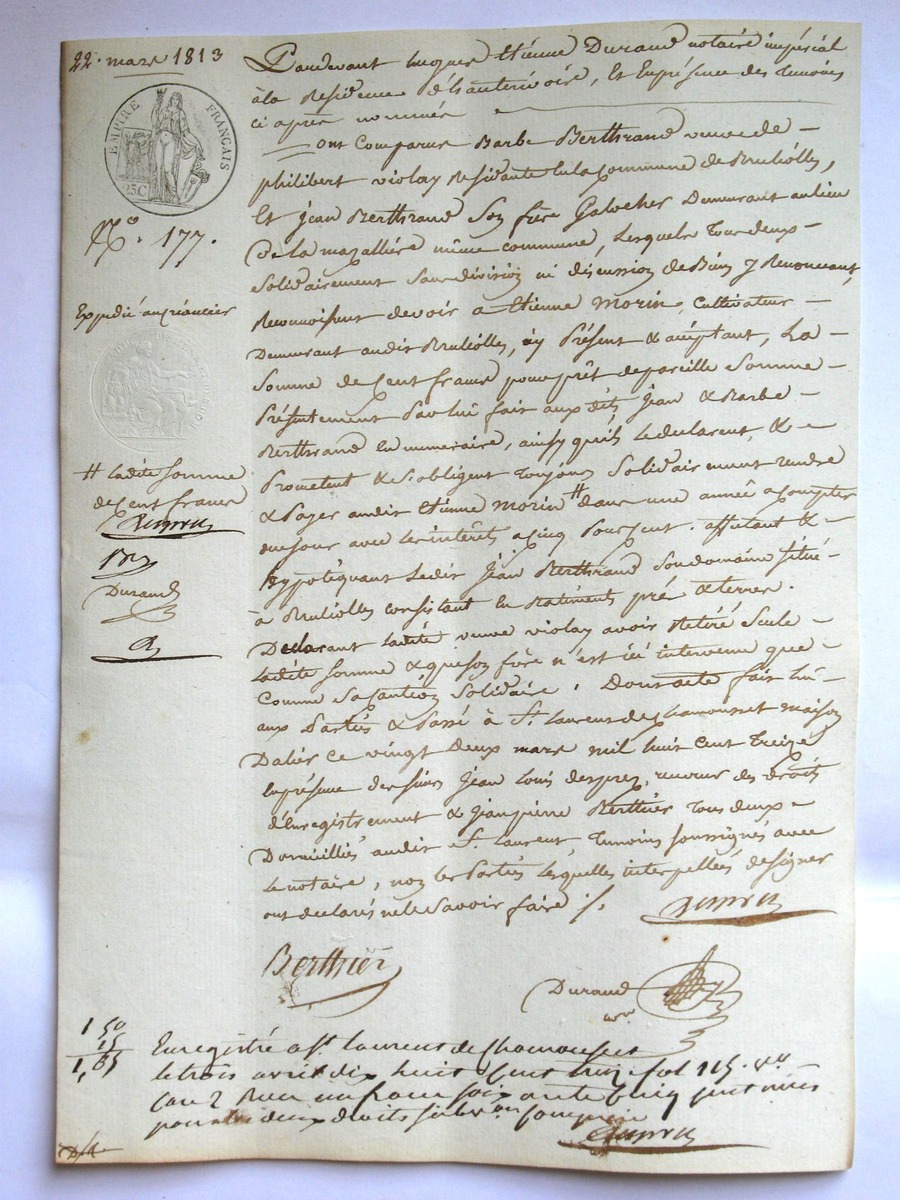 22. mars 1813
EMPIRE FRANÇAIS
25C
N.º 177.
Expédié au créancier
# ladite somme
de Cent francs
Durand
Pardevant hugues Etienne Durand notaire impérial
à la Residence d'hauterivoire, Et En présence des Temoins
ci après nommés
ont Comparus Barbe Berthrand veuve de
philibert violay Residante En la Commune de Bruliolles,
Et jean Berthrand Son frère Galocher Demeurant au lieu
De la mazallière même commune, Lesquels Tous deux
Solidairement Sans division ni discussion de Biens y Renonceant,
Reconnoissent devoir a Etienne morin, Cultivateur
Demeurant audit Brulliolles, icy Présent & acceptant, La
Somme de Cent francs pour prêt de pareille Somme
Présentement Par lui fait aux dits Jean & Barbe
Berthrand En numeraire, ainsy qu'ils le déclarent, &
Promettent & S'obligent Toujours Solidairement rendre
& Payer audit Etienne morin # dans une année a Compter
du jour avec les intérêts a Cinq Pour Cent. affectant &
hypotéquant Ledit Jean Berthrand Son domaine Situé
à Bruliolles consistant En Batiments prés & terres.
Déclarant ladite veuve violay avoir Retiré Seule
Ladite Somme & que Son frère n'est ici intervenu que
Comme Sa Caution Solidaire. Dont acte fait Lu
aux Parties & Passé à S.t Laurent de Chamousset maison
Dalier ce vingt deux mars mil huit Cent Treize
En présence des Sieurs Jean Louis desprez, receveur des droits
d'Enregistrement & Jean pierre Berthier Tous deux
Domiciliés audit S.t Laurent, Temoins Soussignés avec
Le notaire, non les Parties Lesquelles interpellées de Signer
ont déclarés ne le Savoir faire ./.
Berthier
Durand
1 50
15
1,65
Enregistré a S.t Laurent de Chamousset
le trois avril dix huit Cent treize fol 115.
Case 2 Reçu un franc soixante Cinq Centimes
pour les deux droits subvon Comprise